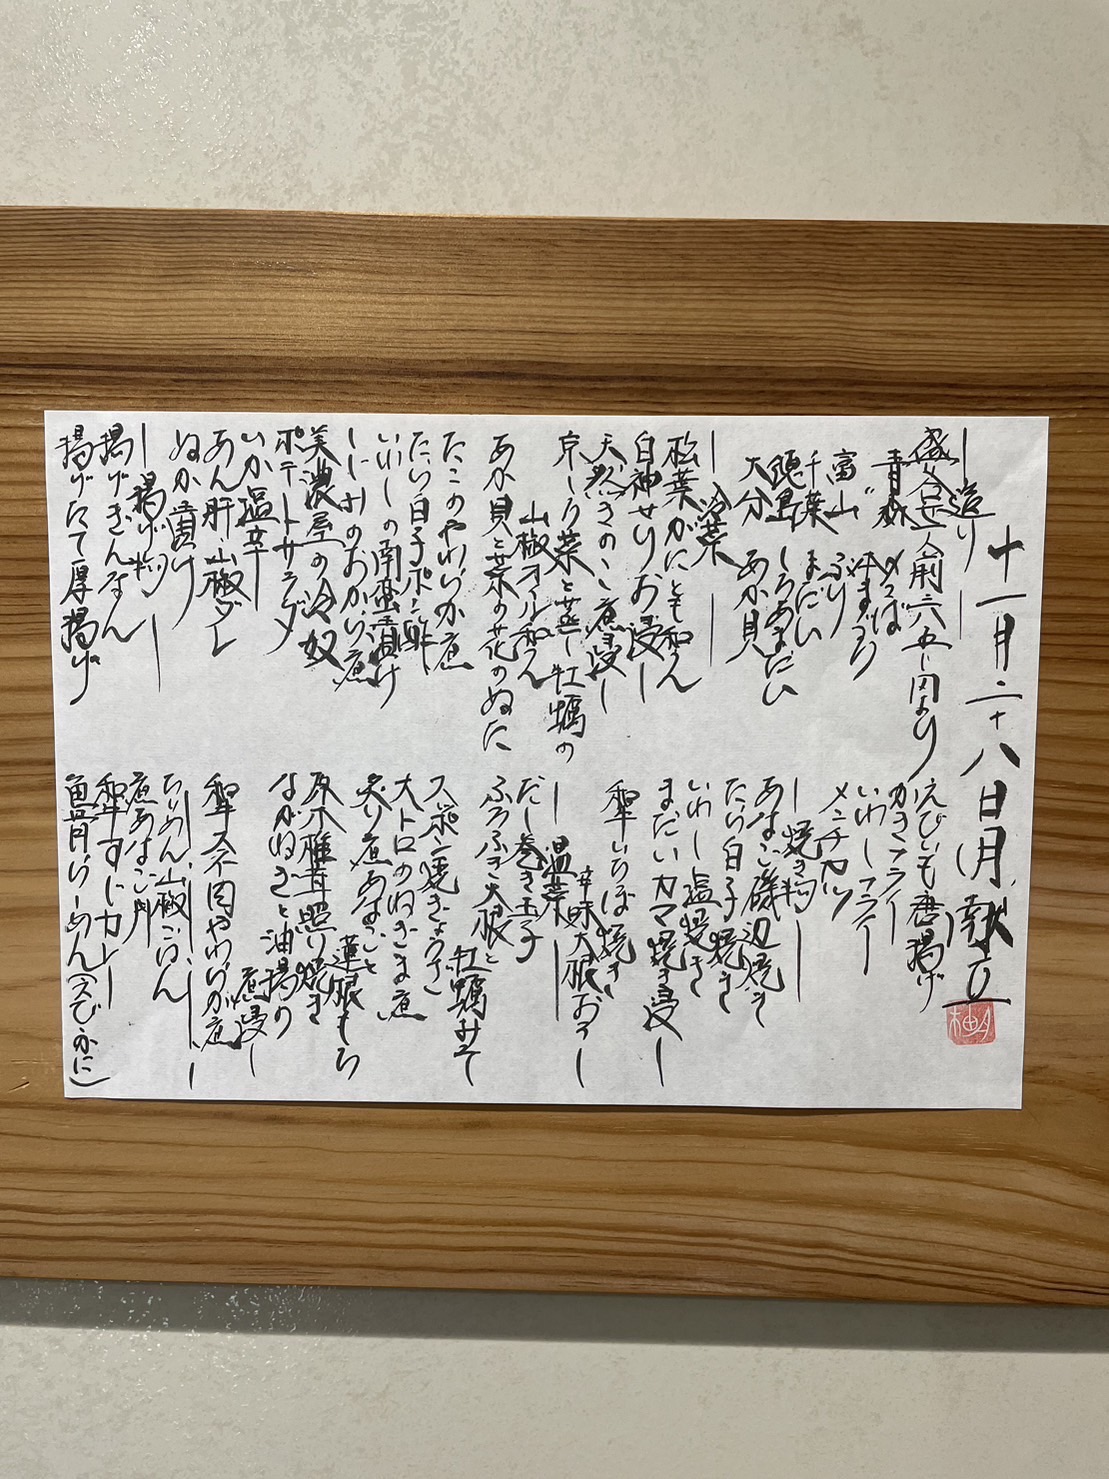 十一月二十八日 献立
造り
盛合せ一人前六五〇円より
青森 〆さば
本まぐろ
富山 ぶり
千葉 まだい
頭島 しろあまだい
大分 あか貝
冷菜
松葉がにとも和え
白神せりお浸し
天然きのこ煮浸し
京しろ菜と蒸し牡蠣の
山椒オイル和え
あか貝と菜の花のぬた
たこのやわらか煮
たら白子ポン酢
いわしの南蛮漬け
いわしのおから煮
美濃屋の冷奴
ポテートサラダ
いか塩辛
あん肝山椒ダレ
ぬか漬け
揚げ物
揚げぎんなん
揚げたて厚揚げ
えびいも唐揚げ
かきフライ
いわしフライ
メンチカツ
焼き物
あなご磯辺焼き
たら白子焼き
いわし塩焼き
まだいカマ焼き浸し
和牛いちぼ焼き
辛味大根おろし
温菜
だし巻き玉子
ふろふき大根と
牡蠣みそ
スッポン焼きぎょうざ
大トロのねぎま煮
炙り煮あなごと
蓮根もち
原木椎茸照り焼き
ながねぎと油揚の
煮浸し
和牛スネ肉やわらか煮
ちりめん山椒ごはん
煮あなご丼
和牛すじカレー
魚骨らーめん(えび・かに)
柚